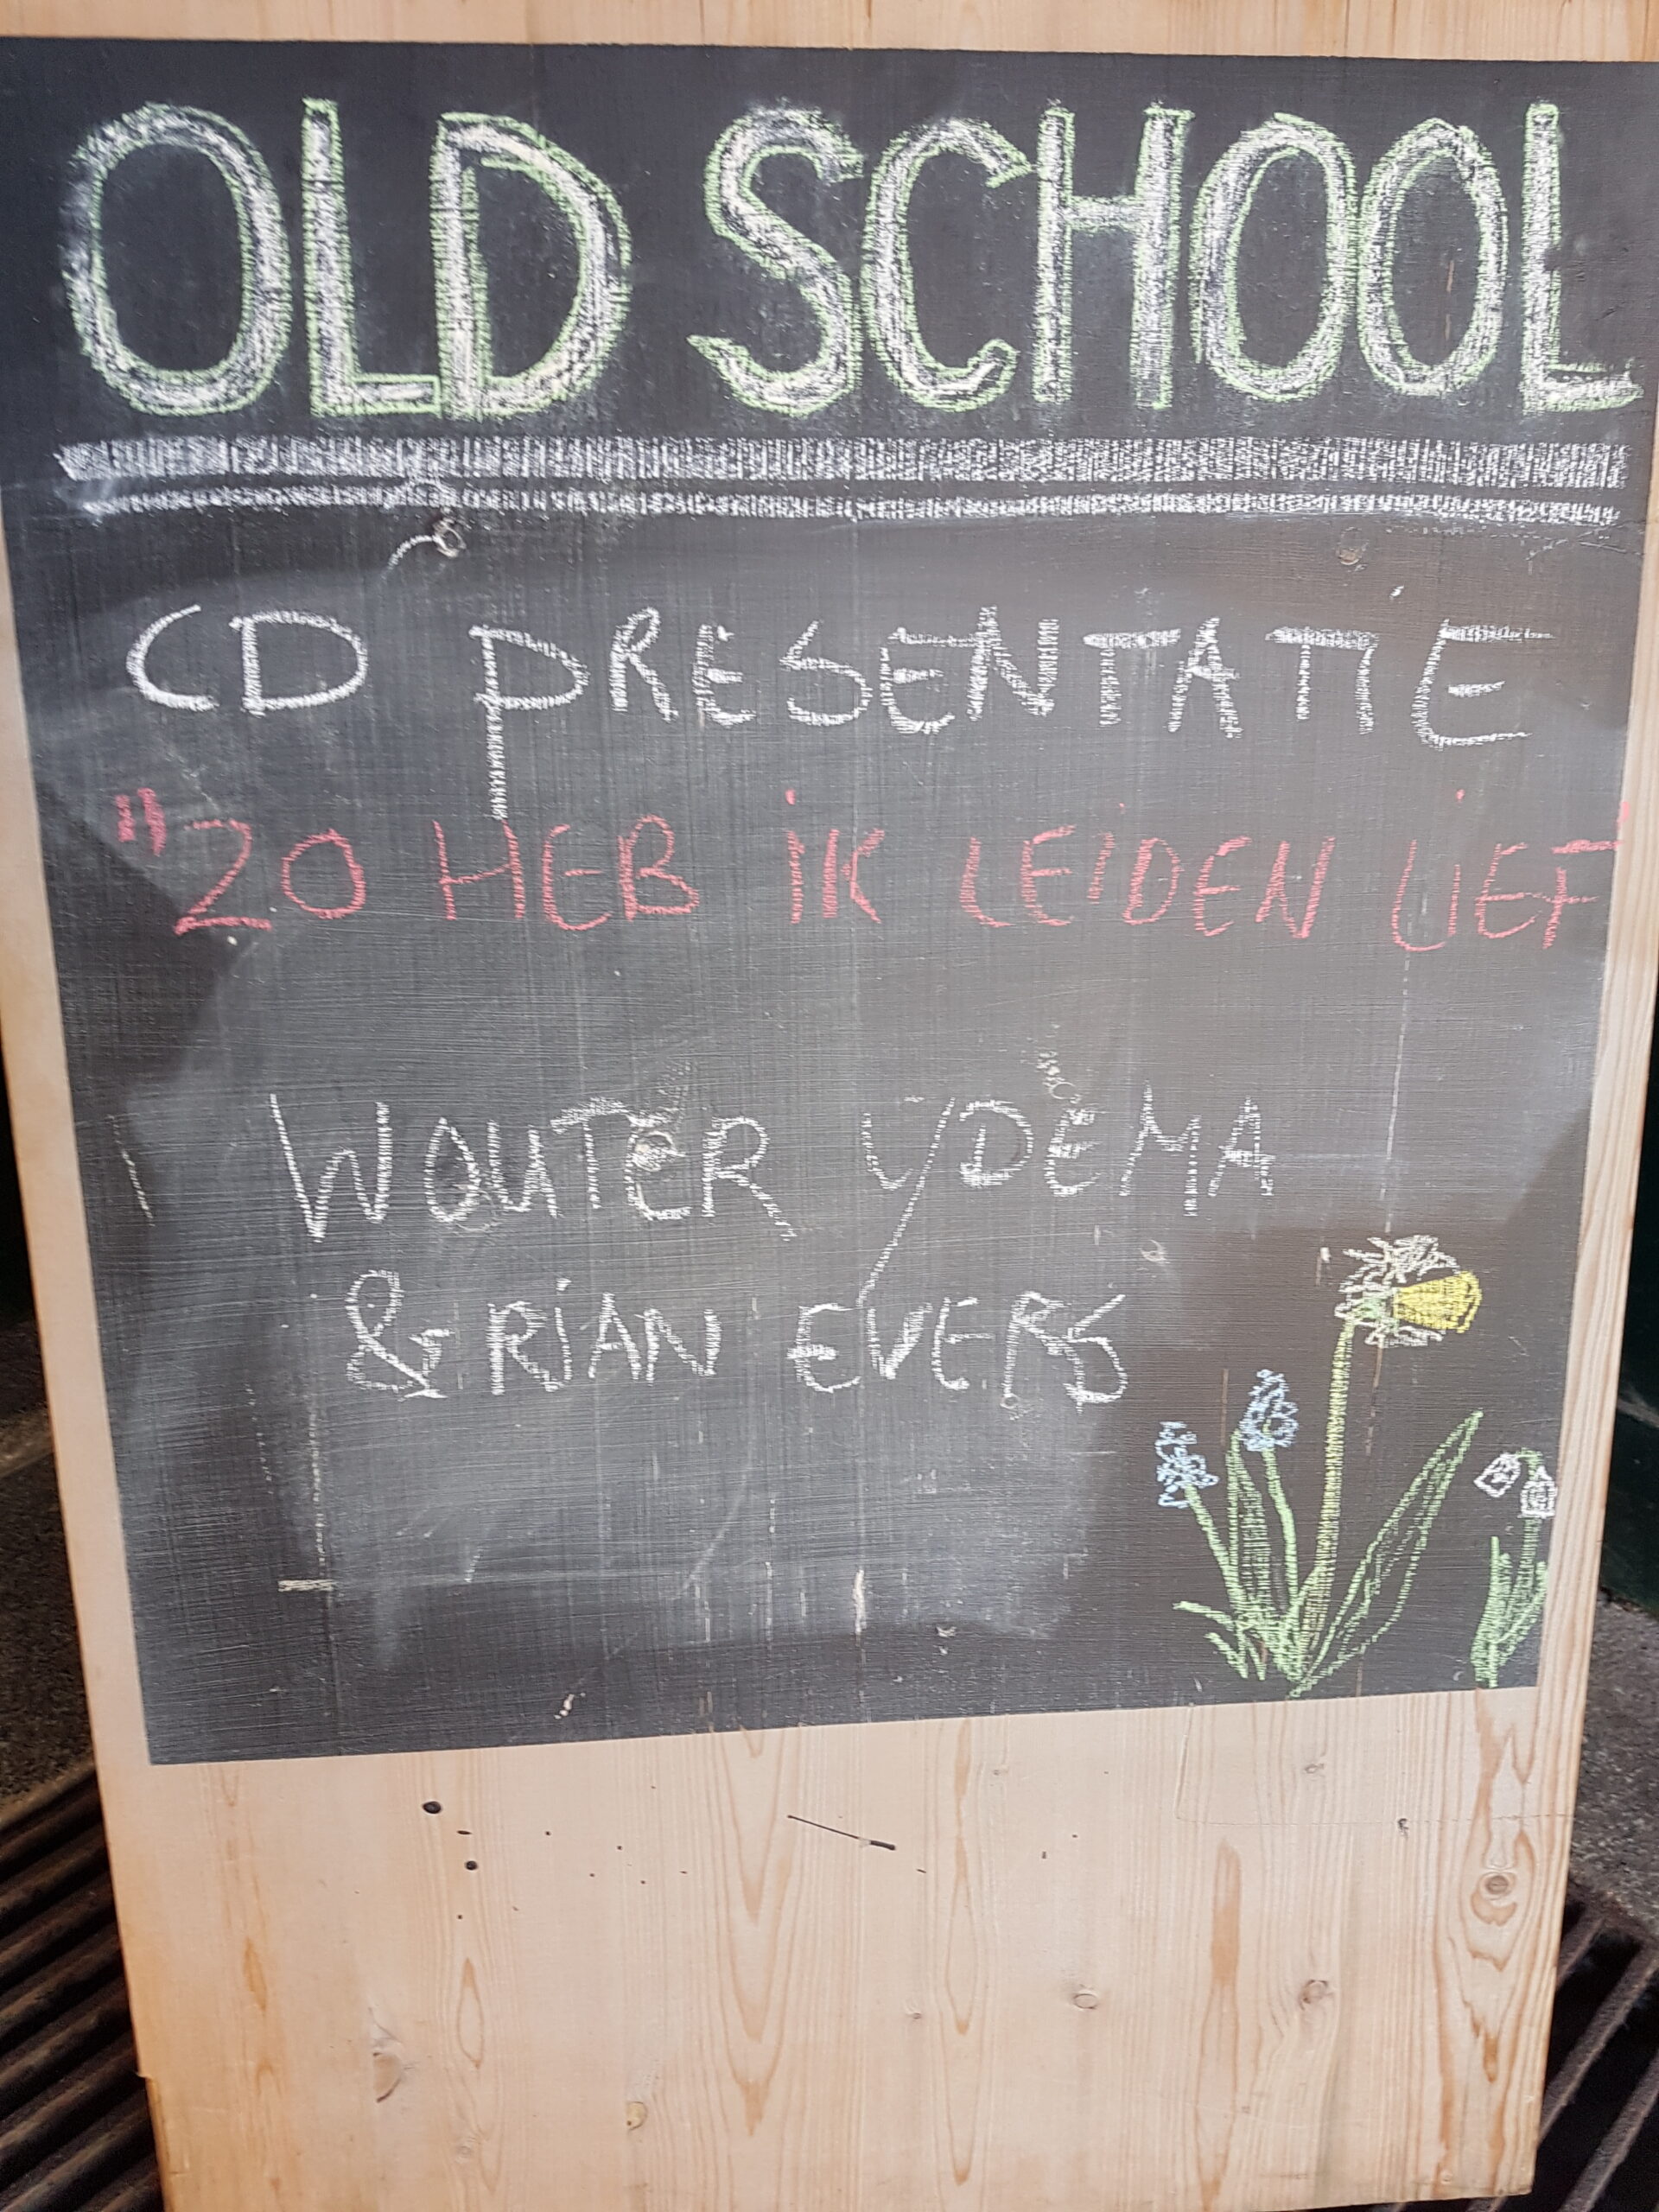 OLD SCHOOL
CD PRESENTATIE
"ZO HEB IK LEIDEN LIEF"
WOUTER YDEMA
& RIAN EVERS